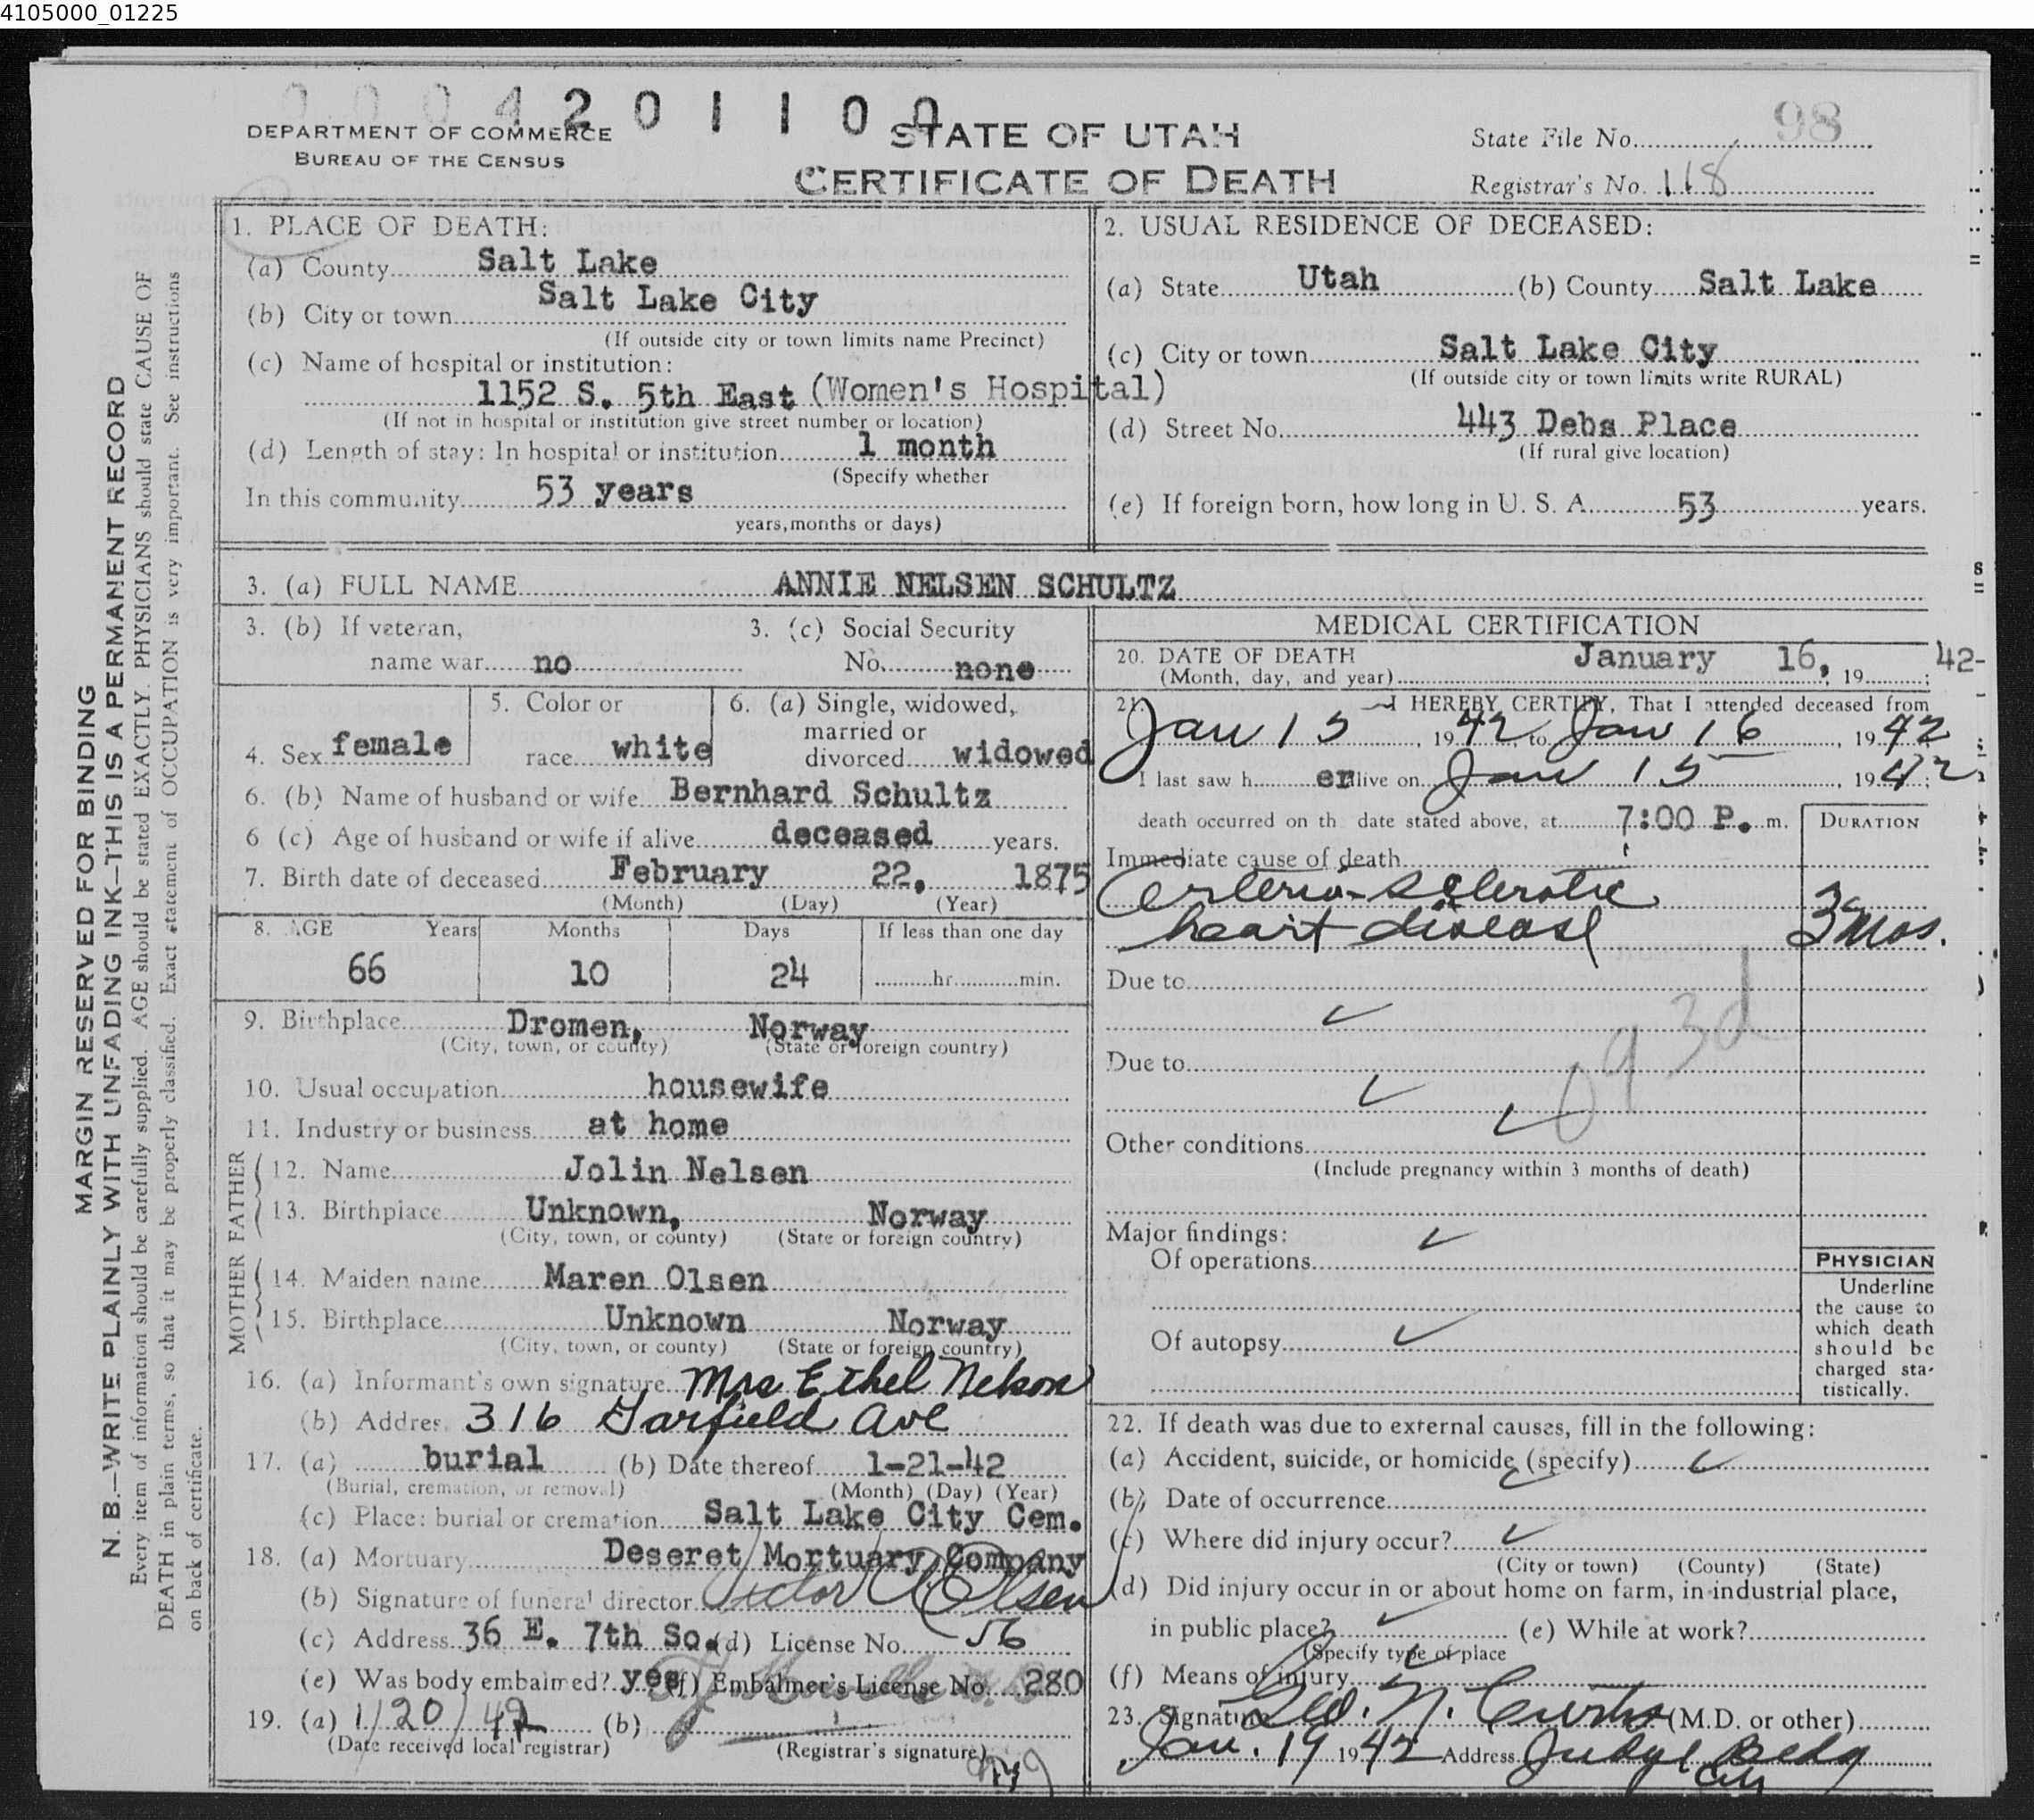 4105000_01225
0004201100
98
DEPARTMENT OF COMMERCE
BUREAU OF THE CENSUS
STATE OF UTAH
CERTIFICATE OF DEATH
State File No.
Registrar's No. 118
MARGIN RESERVED FOR BINDING
N. B.—WRITE PLAINLY WITH UNFADING INK—THIS IS A PERMANENT RECORD
Every item of information should be carefully supplied. AGE should be stated EXACTLY. PHYSICIANS should state CAUSE OF
DEATH in plain terms, so that it may be properly classified. Exact statement of OCCUPATION is very important. See instructions
on back of certificate.
1. PLACE OF DEATH:
(a) County Salt Lake
(b) City or town Salt Lake City
(If outside city or town limits name Precinct)
(c) Name of hospital or institution:
1152 S. 5th East (Women's Hospital)
(If not in hospital or institution give street number or location)
(d) Length of stay: In hospital or institution 1 month
(Specify whether
In this community 53 years
years, months or days)
2. USUAL RESIDENCE OF DECEASED:
(a) State Utah (b) County Salt Lake
(c) City or town Salt Lake City
(If outside city or town limits write RURAL)
(d) Street No. 443 Debs Place
(If rural give location)
(e) If foreign born, how long in U. S. A. 53 years.
3. (a) FULL NAME ANNIE NELSEN SCHULTZ
3. (b) If veteran,
name war no
3. (c) Social Security
No. none
4. Sex female
5. Color or
race white
6. (a) Single, widowed,
married or
divorced widowed
6. (b) Name of husband or wife Bernhard Schultz
6 (c) Age of husband or wife if alive deceased years.
7. Birth date of deceased February 22, 1875
(Month) (Day) (Year)
8. AGE Years Months Days If less than one day
66 10 24 hr. min.
9. Birthplace Dromen, Norway
(City, town, or county) (State or foreign country)
10. Usual occupation housewife
11. Industry or business at home
FATHER
12. Name Jolin Nelsen
13. Birthplace Unknown, Norway
(City, town, or county) (State or foreign country)
MOTHER
14. Maiden name Maren Olsen
15. Birthplace Unknown Norway
(City, town, or county) (State or foreign country)
16. (a) Informant's own signature Mrs Ethel Nelson
(b) Addres. 316 Garfield Ave
17. (a) burial (b) Date thereof 1-21-42
(Burial, cremation, or removal) (Month) (Day) (Year)
(c) Place: burial or cremation Salt Lake City Cem.
18. (a) Mortuary Deseret Mortuary Company
(b) Signature of funeral director Victor Olsen
(c) Address 36 E. 7th So. (d) License No. 56
(e) Was body embalmed? yes (f) Embalmer's License No. 280
19. (a) 1/20/42 (b)
(Date received local registrar) (Registrar's signature)
MEDICAL CERTIFICATION
20. DATE OF DEATH January 16, 42
(Month, day, and year) , 19 ;
21. I HEREBY CERTIFY, That I attended deceased from
Jan 15, 1942, to Jan 16, 1942
I last saw h er live on Jan 15, 1942;
death occurred on th date stated above, at 7:00 P. m.
DURATION
Immediate cause of death
Arterio-sclerotic
heart disease 3 Mos.
Due to
093d
Due to
Other conditions
(Include pregnancy within 3 months of death)
Major findings:
Of operations
Of autopsy
PHYSICIAN
Underline
the cause to
which death
should be
charged sta-
tistically.
22. If death was due to external causes, fill in the following:
(a) Accident, suicide, or homicide (specify)
(b) Date of occurrence
(c) Where did injury occur?
(City or town) (County) (State)
(d) Did injury occur in or about home on farm, in industrial place,
in public place? (e) While at work?
(Specify type of place
(f) Means of injury
23. Signature Geo. N. Curtis (M.D. or other)
Jan. 19 1942 Address Judge Bldg
City